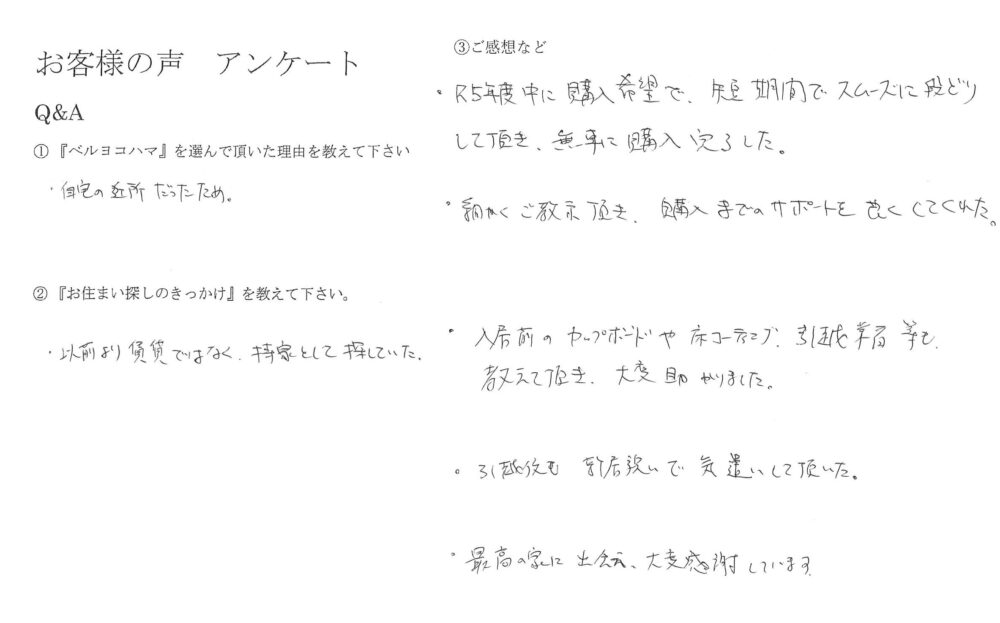 お客様の声 アンケート
Q&A
①『ベルヨコハマ』を選んで頂いた理由を教えて下さい
・自宅の近所だったため。
②『お住まい探しのきっかけ』を教えて下さい。
・以前より賃貸ではなく、持家として探していた。
③ご感想など
・R5年度中に購入希望で、短期間でスムーズに段どり
して頂き、無事に購入完了した。
・細かくご教示頂き、購入までのサポートを良くしてくれた。
・入居前のカップボードや床コーティング、引越業者等も、
教えて頂き、大変助かりました。
・引越後も新居祝いで気遣いして頂いた。
・最高の家に出会え、大変感謝しています。